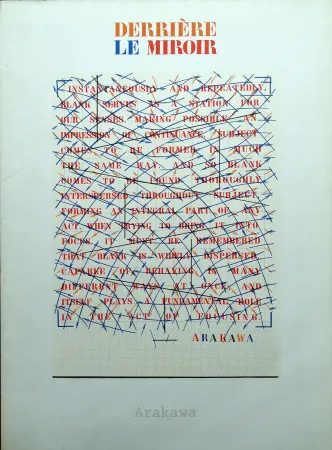 DERRIÈRE
LE MIROIR
INSTANTANEOUSLY AND REPEATEDLY,
BLANK SERVES AS A STATION FOR
OUR SENSES MAKING POSSIBLE AN
IMPRESSION OF CONTINUANCE. SUBJECT
COMES TO BE FORMED IN MUCH
THE SAME WAY. AND SO BLANK
COMES TO BE FOUND THOROUGHLY
INTERSPERSED THROUGHOUT SUBJECT,
FORMING AN INTEGRAL PART OF ANY
ACT. WHEN TRYING TO BRING IT INTO
FOCUS, IT MUST BE REMEMBERED
THAT BLANK IS WIDELY DISPERSED,
CAPABLE OF BEHAVING IN MANY
DIFFERENT WAYS AT ONCE, AND
ITSELF PLAYS A FUNDAMENTAL ROLE
IN THE ACT OF FOCUSING.
ARAKAWA
Arakawa